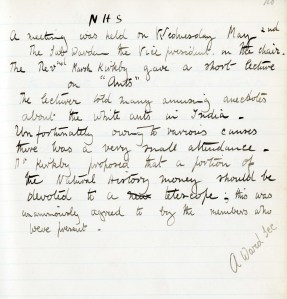 N H S
A meeting was held on Wednesday May 2nd
The Sub Warden the Vice president in the chair.
The Revnd Marsh Kirkby gave a short lecture
on "Ants"
The lecturer told many amusing anecdotes
about the White ants in India -
Unfortunately owing to various causes
there was a very small attendance -
Mr Kirkby proposed that a portion of
the Natural History money should be
devoted to a telescope; this was
unanimously agreed to by the members who
were present -
A Ward Sec